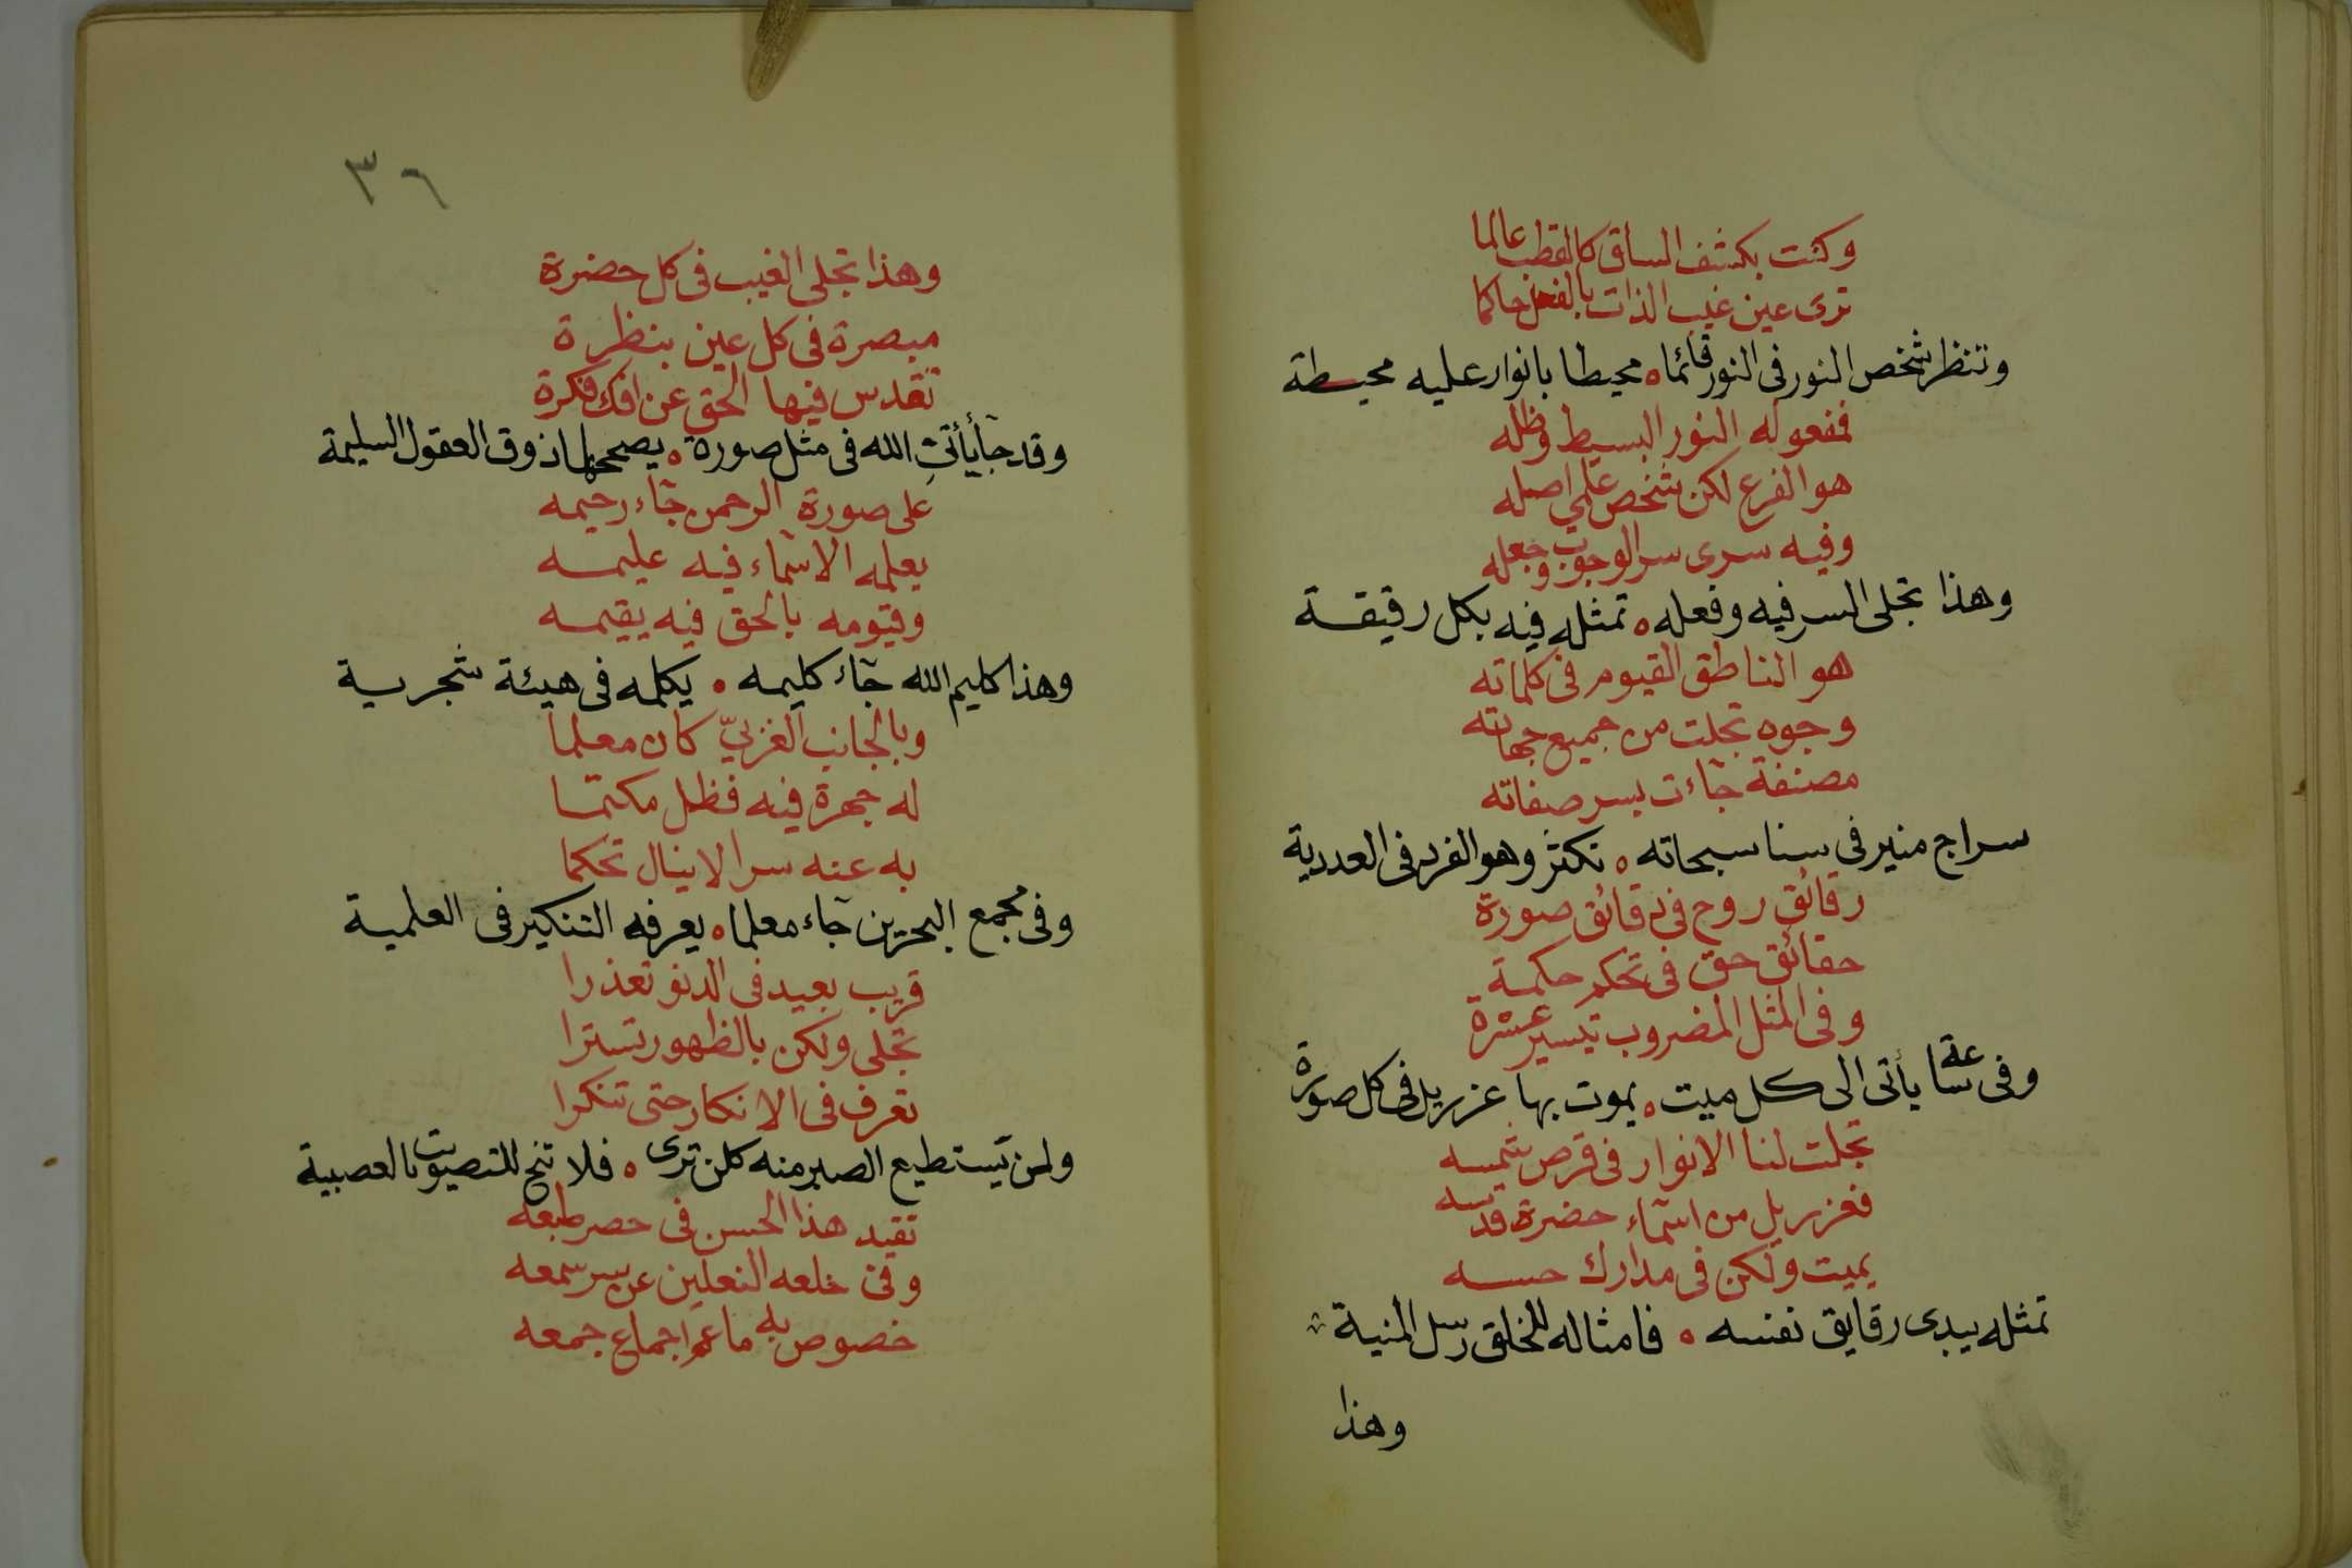 وكنت بكشف الساق كالقطب عالما
ترى عين غيب الذات بالفعل حاكما
وتنظر شخص النور في النور قائما ه محيطا بانوار عليه محيطة
فمفعوله النور البسيط وظله
هو الفرع لكن شخص على اصله
وفيه سرى سر الوجوب وجعله
وهذا تجلى السر فيه وفعله ه تمثله فيه بكل رقيقة
هو الناطق القيوم في كلماته
وجوه تجلت من جميع جهاته
مصنفة جآءت بسر صفاته
سراج منير في سنا سبحاته ه تكثر وهو الفرد في العددية
رقائق روح في دقائق صورة
حقائق حق في تحكم حكمة
وفي المثل المضروب تيسير عسرة
وفي ساعة يأتى الى كل ميت ه يموت بها عزريل في كل صورة
تجلت لنا الانوار في قرص شمسه
فعزريل من اسمآء حضرة قدسه
يميت ولكن في مدارك حسه
تمثله يبدى رقايق نفسه ه فامثاله للخلق رسل المنية
وهذا
٣٦
وهذا تجلى الغيب في كل حضرة
مبصرة في كل عين بنظرة
تقدس فيها الحق عن افك فكرة
وقد جآ يأتى الله في مثل صورة ه يصححها ذوق العقول السليمة
على صورة الرحمن جآء رحيمه
يعلمه الاسمآء فيه عليمه
وقيومه بالحق فيه يقيمه
وهذا كليم الله جآء كليمه ه يكلمه في هيئة شجرية
وبالجانب الغربيّ كان معلما
له جهرة فيه فظل مكتما
به عنه سرا لا ينال تحكما
وفي مجمع البحرين جآء معلما ه يعرفه التنكير في العلمية
قريب بعيد في الدنو تعذرا
تجلى ولكن بالظهور تسترا
تعرف في الانكار حتى تنكرا
ولن يستطيع الصبر منه كلن ترى ه فلا تنح للتصويت بالعصبية
تقيد هذا الحسن في حصر طبعه
وفي خلعه النعلين عن سر سمعه
خصوص به ما عم اجماع جمعه